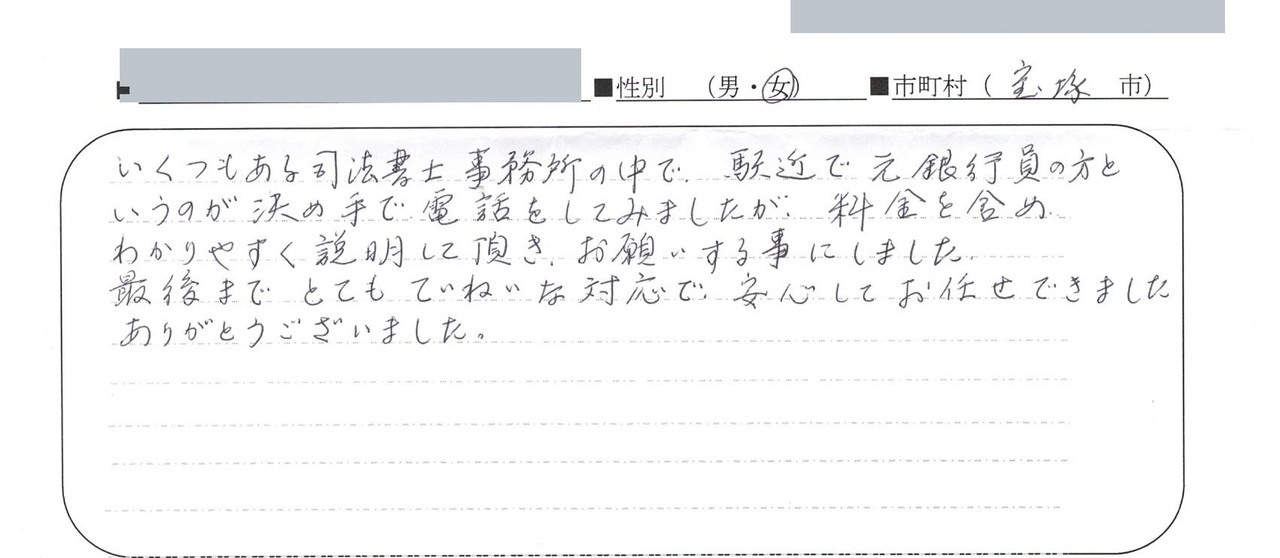 ■性別 (男・女) ■市町村 ( 宝塚 市)
いくつもある司法書士事務所の中で、駅近で元銀行員の方と
いうのが決め手で電話をしてみましたが、料金を含め
わかりやすく説明して頂き、お願いする事にしました。
最後までとてもていねいな対応で、安心してお任せできました
ありがとうございました。